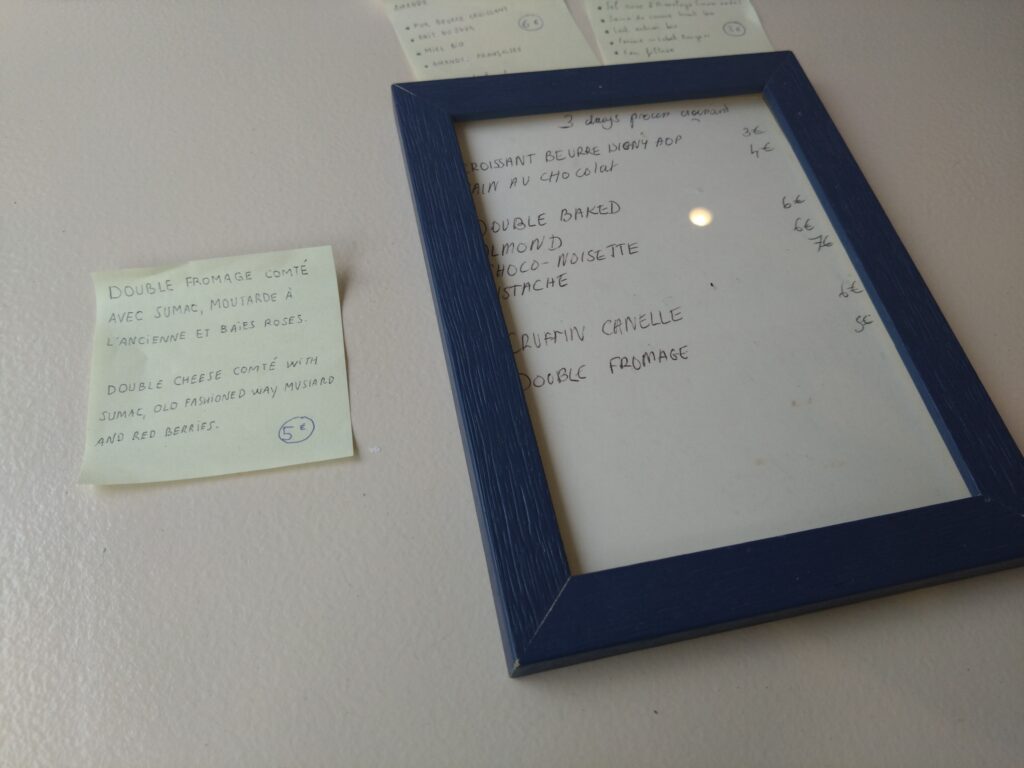 AMANDE
• PUR BEURRE CROISSANT
• MIEL BIO
6€
3€
3 days process croissant
CROISSANT BEURRE DIGNY AOP 3€
PAIN AU CHOCOLAT 4€
DOUBLE BAKED
ALMOND 6€
CHOCO-NOISETTE 6€
PISTACHE 7€
CRUFFIN CANELLE 6€
DOUBLE FROMAGE 5€
DOUBLE FROMAGE COMTÉ
AVEC SUMAC, MOUTARDE À
L'ANCIENNE ET BAIES ROSES.
DOUBLE CHEESE COMTÉ WITH
SUMAC, OLD FASHIONED WAY MUSTARD
AND RED BERRIES.
5€